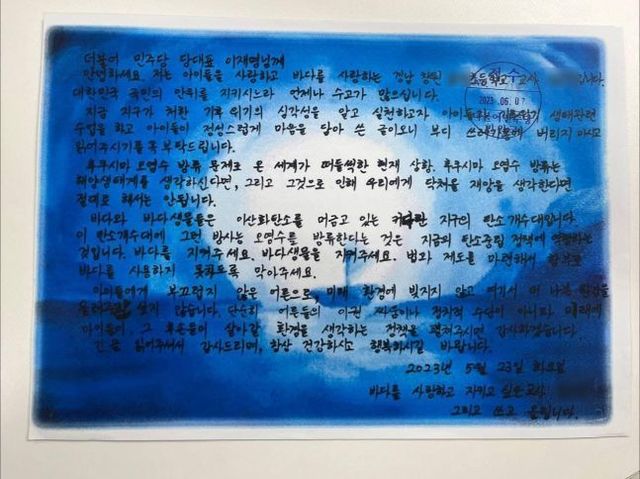 더불어 민주당 당대표 이재명님께
안녕하세요 저는 아이들을 사랑하고 바다를 사랑하는 경남 창원 초등학교 교사 입니다.
대한민국 국민의 안위를 지키시느라 언제나 수고가 많으십니다.
접수
2023. 06. 07
지금 지구가 처한 기후 위기의 심각성을 알고 실천하고자 아이들과 생태관련
수업을 하고 아이들이 정성스럽게 마음을 담아 쓴 글이오니 부디 쓰레기통에 버리지 마시고
읽어주시기를 꼭 부탁드립니다.
후쿠시마 오염수 방류 문제로 온 세계가 떠들썩한 현재 상황. 후쿠시마 오염수 방류는
해양생태계를 생각하신다면, 그리고 그것으로 인해 우리에게 닥쳐올 재앙을 생각한다면
절대로 해서는 안됩니다.
바다와 바다생물들은 이산화탄소를 머금고 있는 커다란 지구의 탄소 개수대입니다.
이 탄소개수대에 그런 방사능 오염수를 방류한다는 것은 지금의 탄소중립 정책에 역행하는
것입니다. 바다를 지켜주세요. 바다생물을 지켜주세요. 법과 제도를 마련해서
바다를 사용하지 못하도록 막아주세요.
아이들에게 부끄럽지 않은 어른으로, 미래 환경에 빚지지 않고 여기서 더 나쁜 환경을
물려주고 싶지 않습니다. 단순히 어른들의 이권 다툼이나 정치적 수단이 아니라 미래에
아이들이 그 후손들이 살아갈 환경을 생각하는 정책을 펼쳐주시면 감사하겠습니다.
긴 글 읽어주셔서 감사드리며, 항상 건강하시고 행복하시길 바랍니다.
2023년 5월 23일 화요일
바다를 사랑하고 지키고 싶은 교사
그리고 쓰고 올립니다.